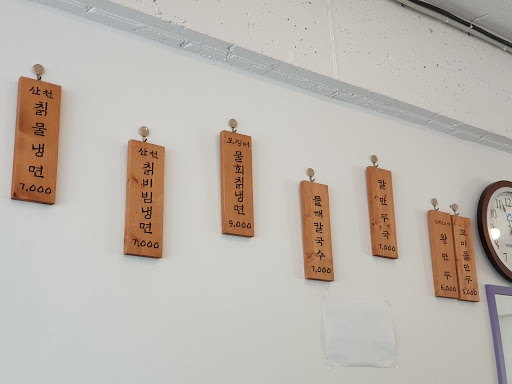 산천
칡물냉면
7,000
산천
칡비빔냉면
7,000
오징어
물회칡냉면
9,000
들깨칼국수
7,000
칼만두국
7,000
왕만두
6,000
꼬마물만두
5,000